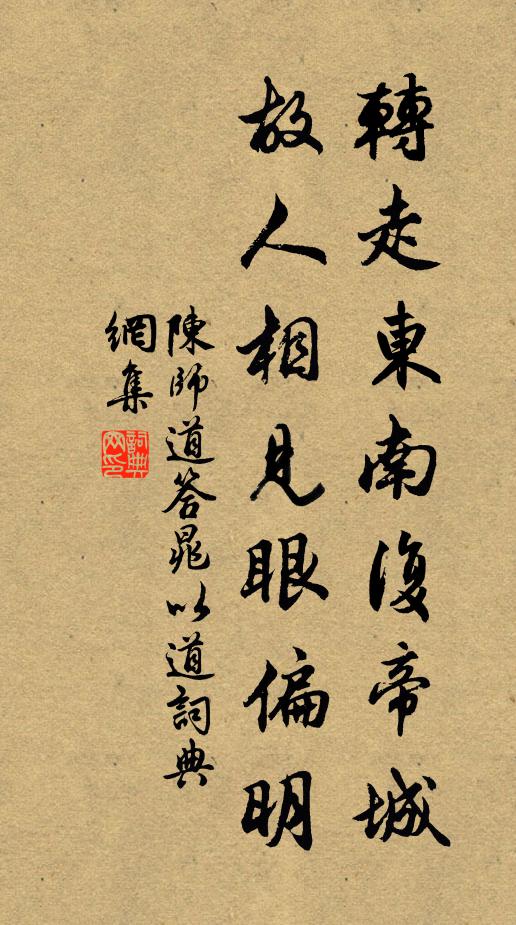 轉走東南復帝城
故人相見眼偏明
陳師道答晁以道詞典
網集
詞典
网印